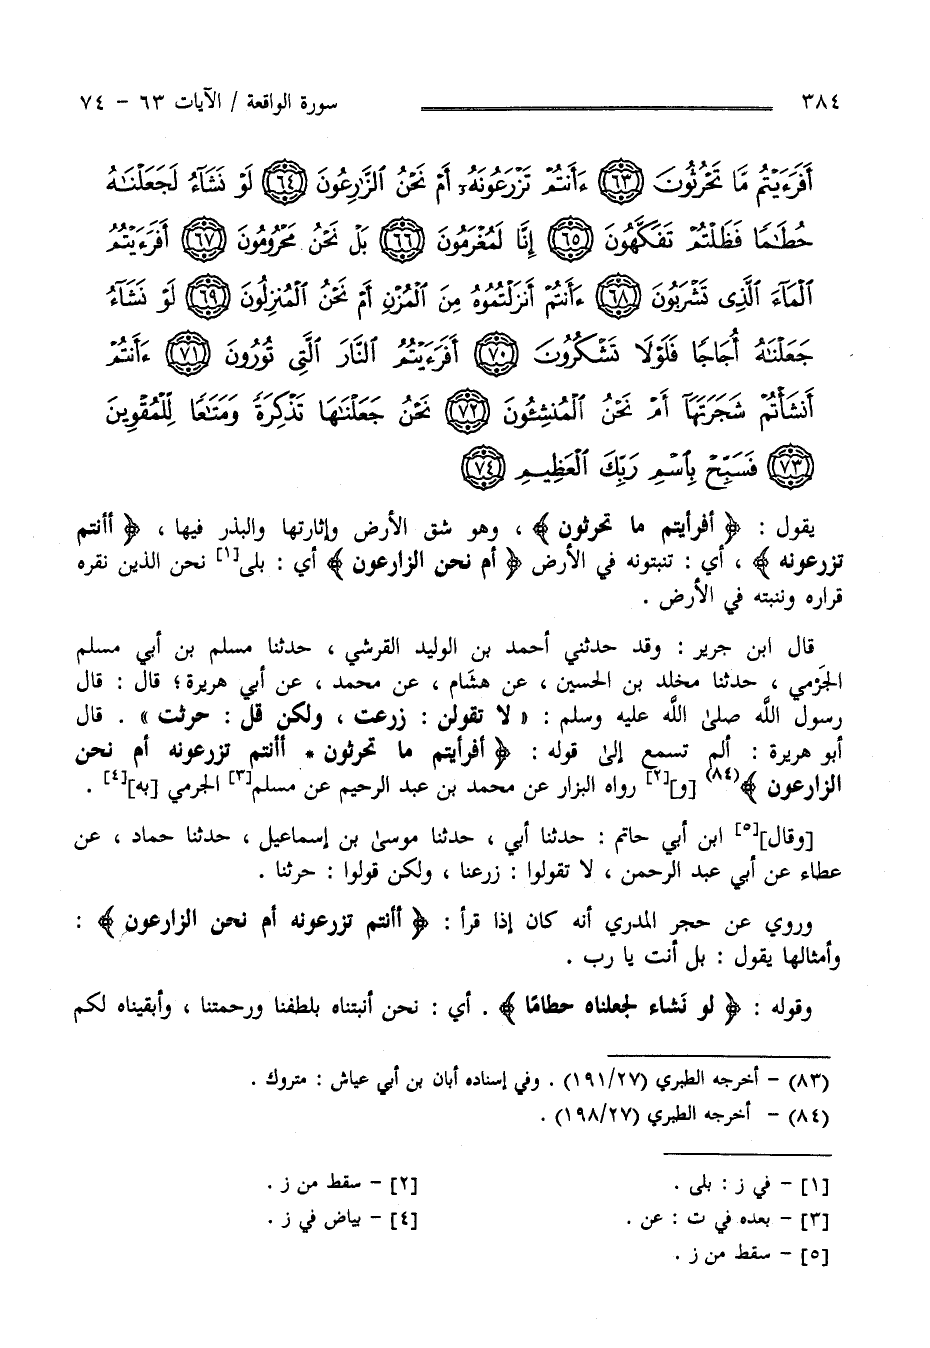 ٣٨٤ سورة الواقعة / الآيات ٦٣ - ٧٤
أَفَرَءَيْتُم مَّا تَحْرُثُونَ ٦٣ ءَأَنتُمْ تَزْرَعُونَهُۥٓ أَمْ نَحْنُ ٱلزَّٰرِعُونَ ٦٤ لَوْ نَشَآءُ لَجَعَلْنَٰهُ
حُطَٰمًا فَظَلْتُمْ تَفَكَّهُونَ ٦٥ إِنَّا لَمُغْرَمُونَ ٦٦ بَلْ نَحْنُ مَحْرُومُونَ ٦٧ أَفَرَءَيْتُمُ
ٱلْمَآءَ ٱلَّذِى تَشْرَبُونَ ٦٨ ءَأَنتُمْ أَنزَلْتُمُوهُ مِنَ ٱلْمُزْنِ أَمْ نَحْنُ ٱلْمُنزِلُونَ ٦٩ لَوْ نَشَآءُ
جَعَلْنَٰهُ أُجَاجًا فَلَوْلَا تَشْكُرُونَ ٧٠ أَفَرَءَيْتُمُ ٱلنَّارَ ٱلَّتِى تُورُونَ ٧١ ءَأَنتُمْ
أَنشَأْتُمْ شَجَرَتَهَآ أَمْ نَحْنُ ٱلْمُنشِـُٔونَ ٧٢ نَحْنُ جَعَلْنَٰهَا تَذْكِرَةً وَمَتَٰعًا لِّلْمُقْوِينَ
٧٣ فَسَبِّحْ بِٱسْمِ رَبِّكَ ٱلْعَظِيمِ ٧٤
يقول : ﴿ أفرأيتم ما تحرثون ﴾ ، وهو شق الأرض وإثارتها والبذر فيها ، ﴿ أأنتم
تزرعونه ﴾ ، أي : تنبتونه في الأرض ﴿ أم نحن الزارعون ﴾ أي : بلى[١] نحن الذين نقره
قراره وننبته في الأرض .
قال ابن جرير : وقد حدثني أحمد بن الوليد القرشي ، حدثنا مسلم بن أبي مسلم
الجَرْمي ، حدثنا مخلد بن الحسين ، عن هشَام ، عن محمد ، عن أبي هريرة؛ قال : قال
رسول اللَّه صلى اللَّه عليه وسلم : « لا تقولن : زرعت ، ولكن قل : حرثت » . قال
أبو هريرة : ألم تسمع إلى قوله : ﴿ أفرأيتم ما تحرثون * أأنتم تزرعونه أم نحن
الزارعون ﴾(٨٤) [و][٢] رواه البزار عن محمد بن عبد الرحيم عن مسلم[٣] الجرمي [به][٤] .
[وقال][٥] ابن أبي حاتم : حدثنا أبي ، حدثنا موسى بن إسماعيل ، حدثنا حماد ، عن
عطاء عن أبي عبد الرحمن ، لا تقولوا : زرعنا ، ولكن قولوا : حرثنا .
وروي عن حجر المدري أنه كان إذا قرأ : ﴿ أأنتم تزرعونه أم نحن الزارعون ﴾ :
وأمثالها يقول : بل أنت يا رب .
وقوله : ﴿ لو نَشاء لجعلناه حطامًا ﴾ . أي : نحن أنبتناه بلطفنا ورحمتنا ، وأبقيناه لكم
(٨٣) - أخرجه الطبري (١٩١/٢٧) . وفي إسناده أبان بن أبي عياش : متروك .
(٨٤) - أخرجه الطبري (١٩٨/٢٧) .
[١] - في ز : بلى . [٢] - سقط من ز .
[٣] - بعده في ت : عن . [٤] - بياض في ز .
[٥] - سقط من ز .